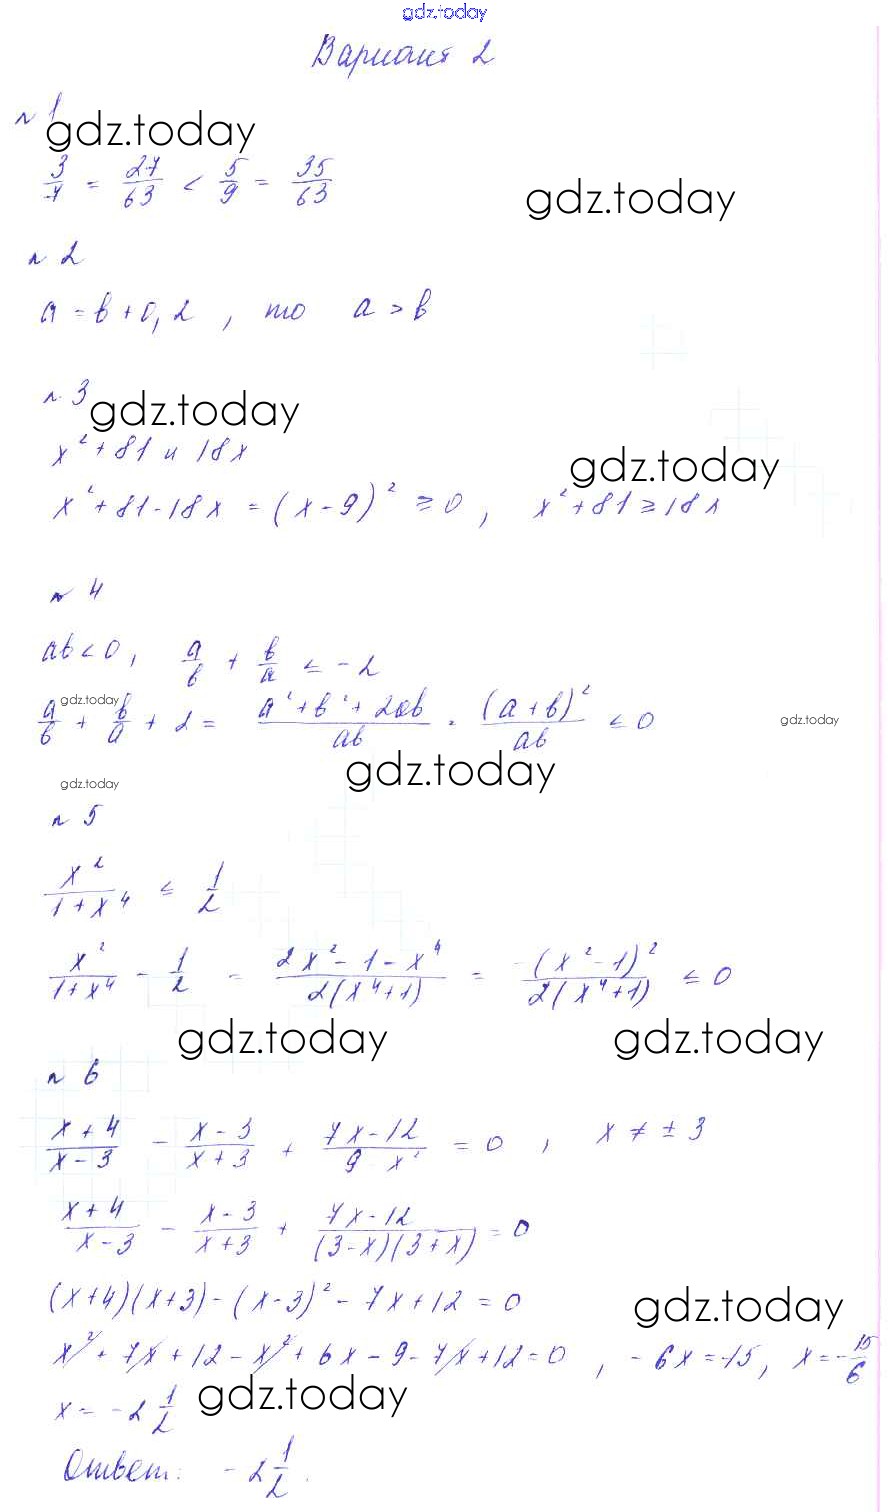 gdz.today
Вариант 2
n 1
gdz.today
3/7 = 27/63 < 5/9 = 35/63
gdz.today
n 2
a = b + 0,2 , то a > b
n 3
gdz.today
x² + 81 и 18x
gdz.today
x² + 81 - 18x = (x - 9)² ≥ 0 , x² + 81 ≥ 18x
n 4
ab < 0 , a/b + b/a ≤ -2
gdz.today
a/b + b/a + 2 = (a² + b² + 2ab)/ab = (a + b)²/ab ≤ 0
gdz.today
gdz.today
gdz.today
n 5
x²/(1 + x⁴) ≤ 1/2
x²/(1 + x⁴) - 1/2 = (2x² - 1 - x⁴)/(2(x⁴ + 1)) = -(x² - 1)²/(2(x⁴ + 1)) ≤ 0
gdz.today gdz.today
n 6
(x + 4)/(x - 3) - (x - 3)/(x + 3) + (7x - 12)/(9 - x²) = 0 , x ≠ ± 3
(x + 4)/(x - 3) - (x - 3)/(x + 3) + (7x - 12)/((3 - x)(3 + x)) = 0
(x + 4)(x + 3) - (x - 3)² - 7x + 12 = 0
gdz.today
x² + 7x + 12 - x² + 6x - 9 - 7x + 12 = 0 , - 6x = -15 , x = -15/6
x = -2 1/2
gdz.today
Ответ: -2 1/2.